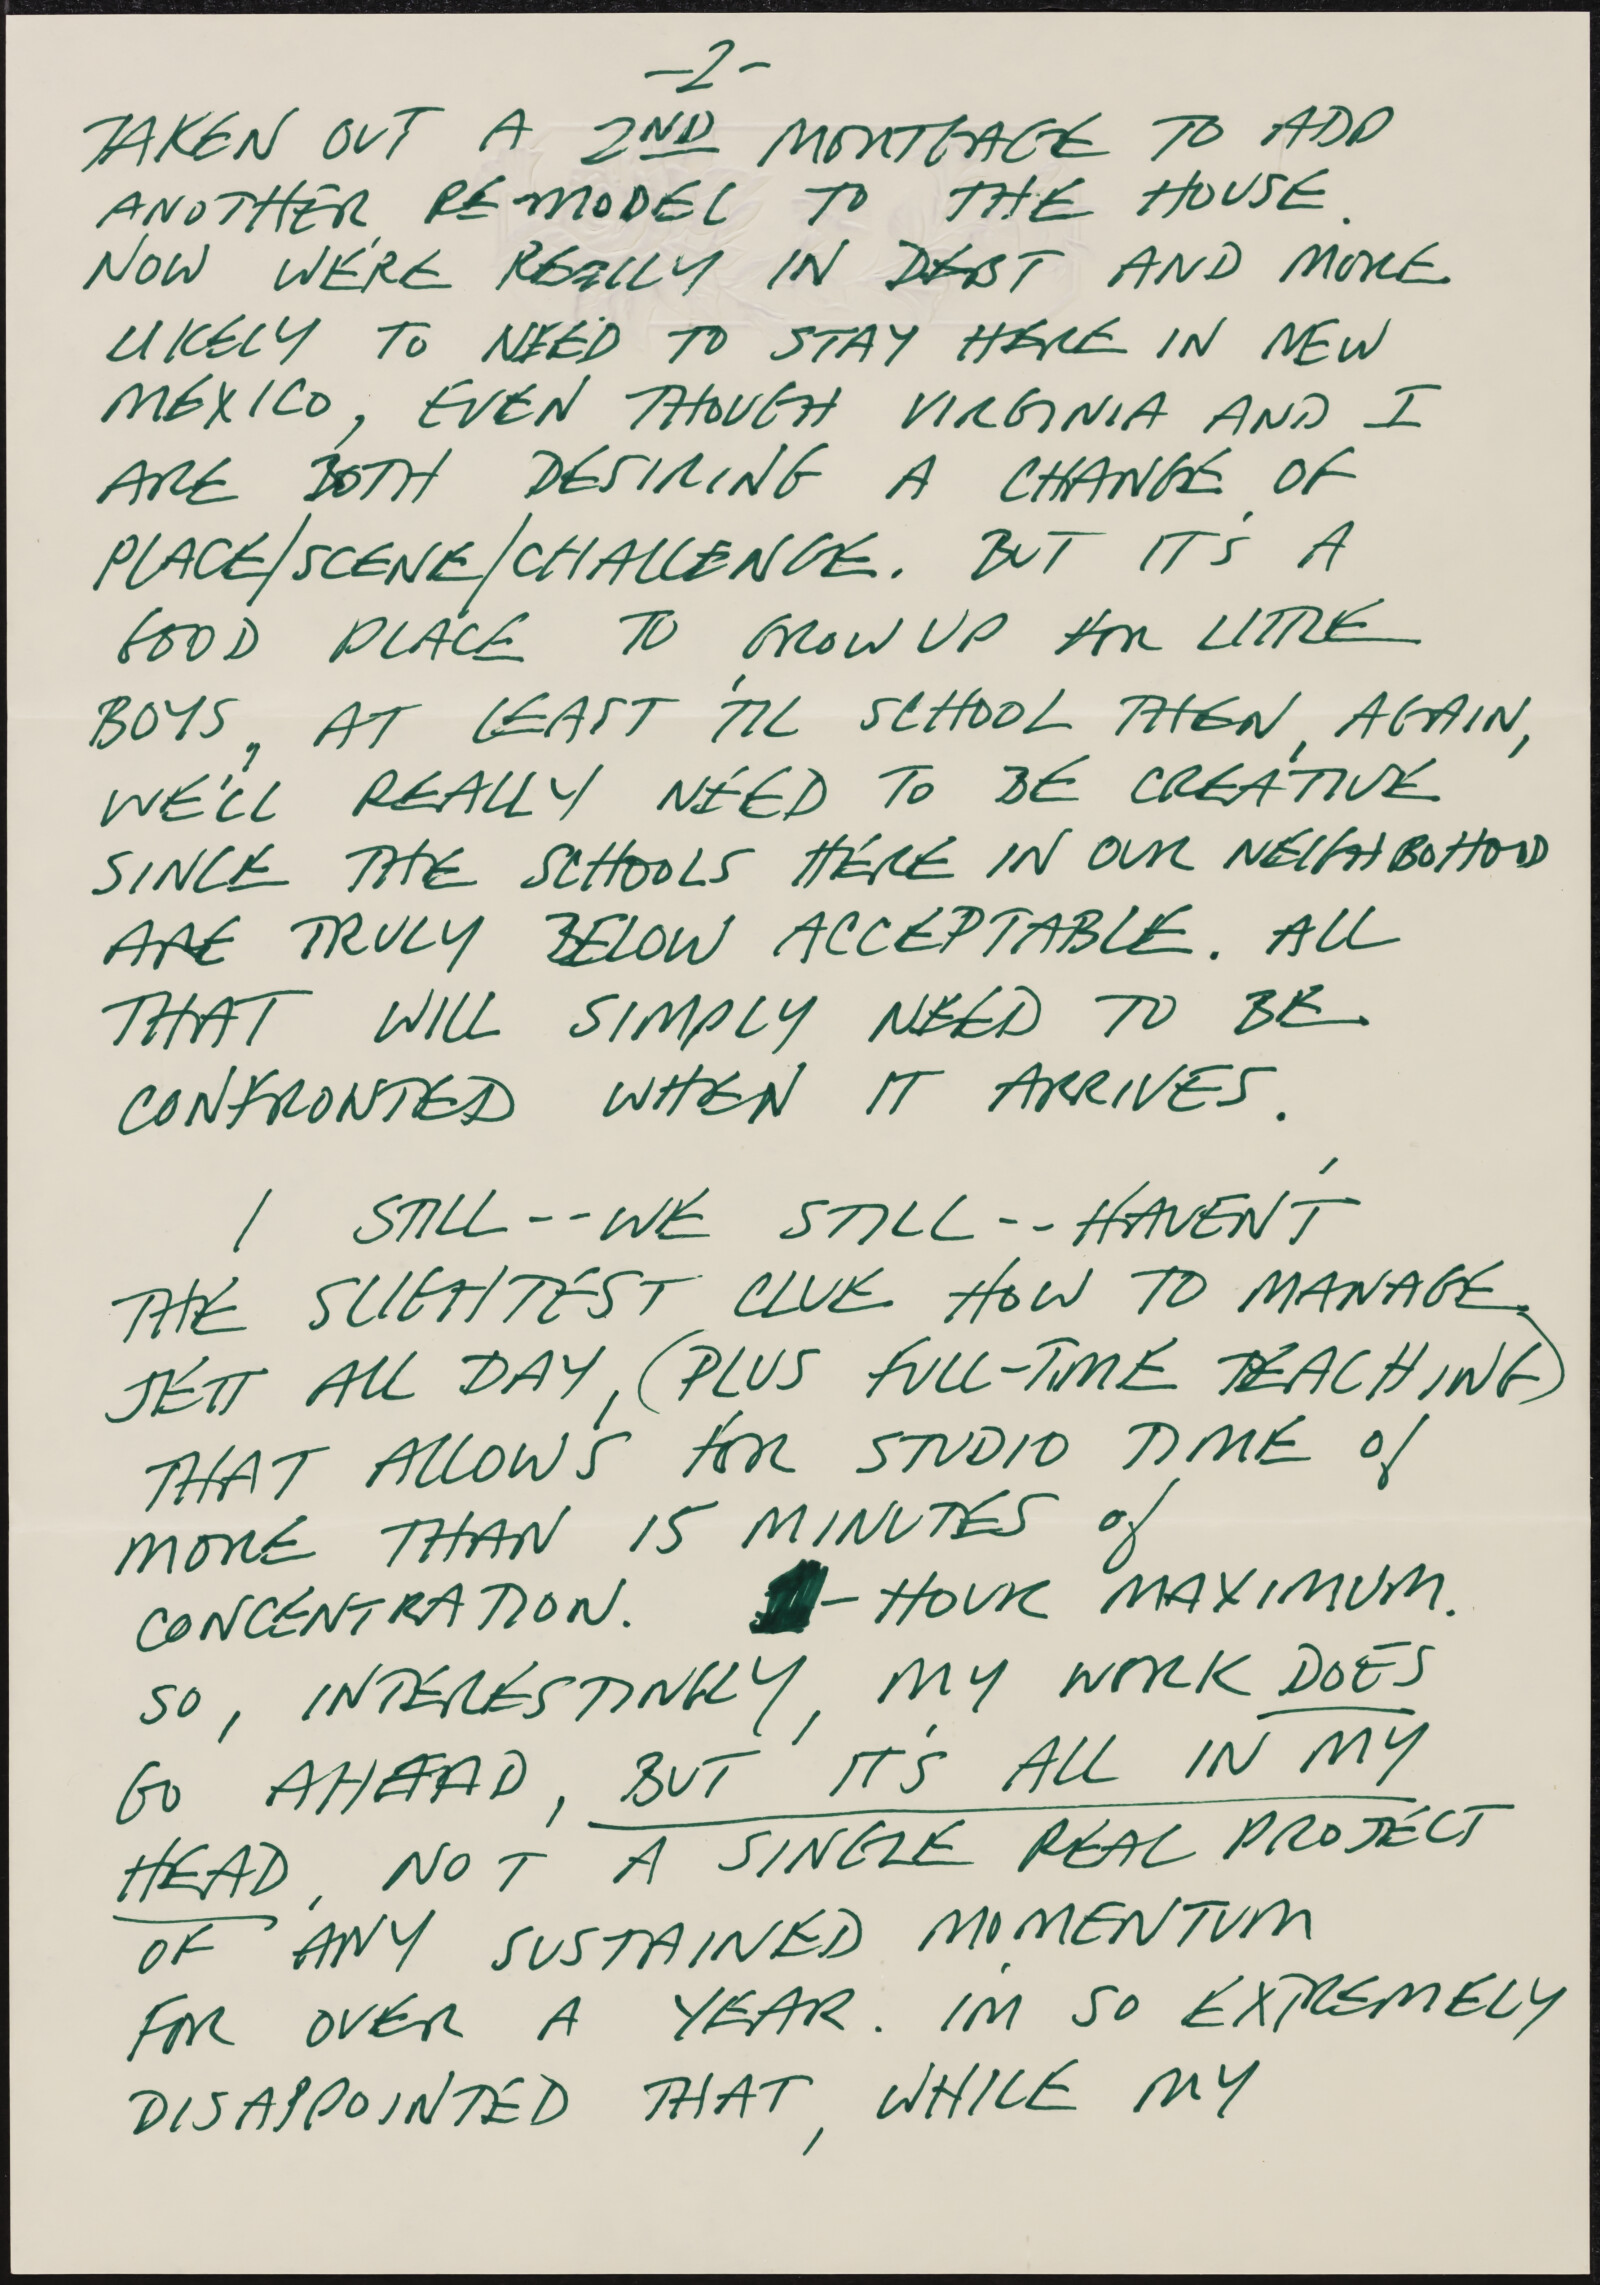 -2-
TAKEN OUT A 2ND MORTGAGE TO ADD
ANOTHER REMODEL TO THE HOUSE.
NOW WE'RE REALLY IN DEBT AND MORE
LIKELY TO NEED TO STAY HERE IN NEW
MEXICO, EVEN THOUGH VIRGINIA AND I
ARE BOTH DESIRING A CHANGE OF
PLACE/SCENE/CHALLENGE. BUT IT'S A
GOOD PLACE TO GROW UP FOR LITTLE
BOYS, AT LEAST 'TIL SCHOOL THEN, AGAIN,
WE'LL REALLY NEED TO BE CREATIVE
SINCE THE SCHOOLS HERE IN OUR NEIGHBOHOOD
ARE TRULY BELOW ACCEPTABLE. ALL
THAT WILL SIMPLY NEED TO BE
CONFRONTED WHEN IT ARRIVES.
I STILL--WE STILL--HAVEN'T
THE SLIGHTEST CLUE HOW TO MANAGE
JETT ALL DAY, (PLUS FULL-TIME TEACHING)
THAT ALLOWS FOR STUDIO TIME of
MORE THAN 15 MINUTES of
CONCENTRATION. -HOUR MAXIMUM.
SO, INTERESTINGLY, MY WORK DOES
GO AHEAD, BUT IT'S ALL IN MY
HEAD, NOT A SINGLE REAL PROJECT
OF ANY SUSTAINED MOMENTUM
FOR OVER A YEAR. I'M SO EXTREMELY
DISAPPOINTED THAT, WHILE MY